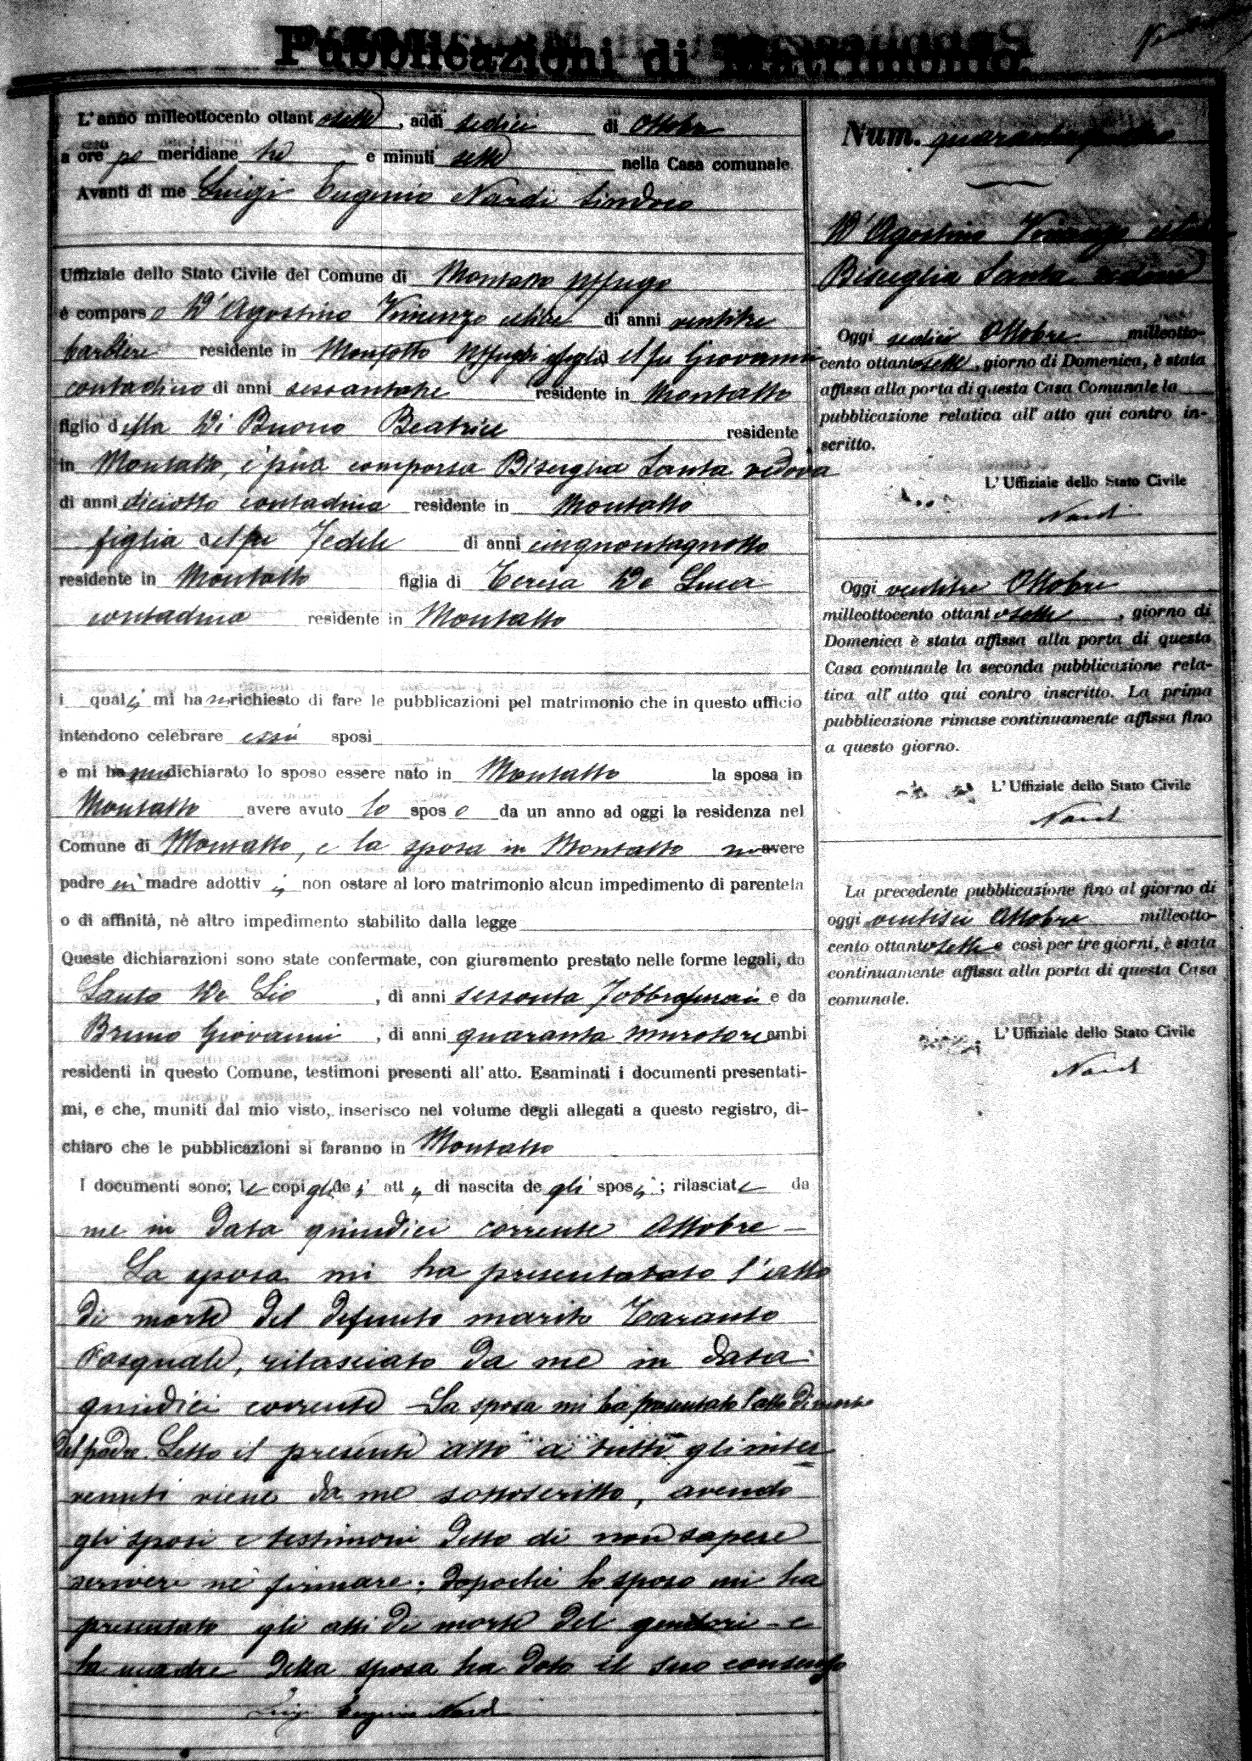 Pubblicazioni di Matrimonio
L'anno milleottocento ottantasette, addì sedici di Ottobre
a ore po meridiane tre e minuti sette nella Casa comunale.
Avanti di me Luigi Eugenio Nardi Sindaco
Uffiziale dello Stato Civile del Comune di Montalto Uffugo
è comparso D'Agostino Vincenzo celibe di anni ventitre
barbiere residente in Montalto Uffugo figlio del fu Giovanni
contadino di anni residente in Montalto
figlio della Di Buono Beatrice residente
in Montalto, è pua comparsa Bisceglia Santa vedova
di anni diciotto contadina residente in Montalto
figlia del fu Fedele di anni cinquantaquattro
residente in Montalto figlia di Teresa De Luca
contadina residente in Montalto
i quali mi han richiesto di fare le pubblicazioni pel matrimonio che in questo ufficio
intendono celebrare essi sposi
e mi han dichiarato lo sposo essere nato in Montalto la sposa in
Montalto avere avuto lo sposo da un anno ad oggi la residenza nel
Comune di Montalto, e la sposa in Montalto avere
padre nè madre adottivi, non ostare al loro matrimonio alcun impedimento di parentela
o di affinità, nè altro impedimento stabilito dalla legge
Queste dichiarazioni sono state confermate, con giuramento prestato nelle forme legali, da
Santo De Lio, di anni sessanta e da
Bruno Giovanni, di anni quaranta muratore ambi
residenti in questo Comune, testimoni presenti all'atto. Esaminati i documenti presentati-
mi, e che, muniti dal mio visto, inserisco nel volume degli allegati a questo registro, di-
chiaro che le pubblicazioni si faranno in Montalto
I documenti sono; le copie de atti di nascita degli sposi; rilasciate da
me in data quindici corrente Ottobre –
La sposa mi ha presentatato l'atto
di morte del defunto marito Taranto
Pasquale, rilasciato da me in data
quindici corrente – La sposa mi ha presentato l'atto di morte
del padre. Letto il presente atto a tutti gli inter
venuti viene da me sottoscritto, avendo
gli sposi e testimoni detto di non sapere
scrivere nè firmare; dopochè lo sposo mi ha
presentato gli atti di morte del genitori – e
la madre della sposa ha dato il suo consenso
Luigi Eugenio Nardi
Num. quarantaquattro
D'Agostino Vincenzo celibe
Bisceglia Santa vedova
Oggi sedici Ottobre milleotto-
cento ottantasette, giorno di Domenica, è stata
affissa alla porta di questa Casa Comunale la
pubblicazione relativa all'atto qui contro in-
scritto.
L'Uffiziale dello Stato Civile
Nardi
Oggi ventitre Ottobre
milleottocento ottantasette, giorno di
Domenica è stata affissa alla porta di questa
Casa comunale la seconda pubblicazione rela-
tiva all'atto qui contro inscritto. La prima
pubblicazione rimase continuamente affissa fino
a questo giorno.
L'Uffiziale dello Stato Civile
Nardi
La precedente pubblicazione fino al giorno di
oggi ventisei Ottobre milleotto-
cento ottantasette e così per tre giorni, è stata
continuamente affissa alla porta di questa Casa
comunale.
L'Uffiziale dello Stato Civile
Nardi